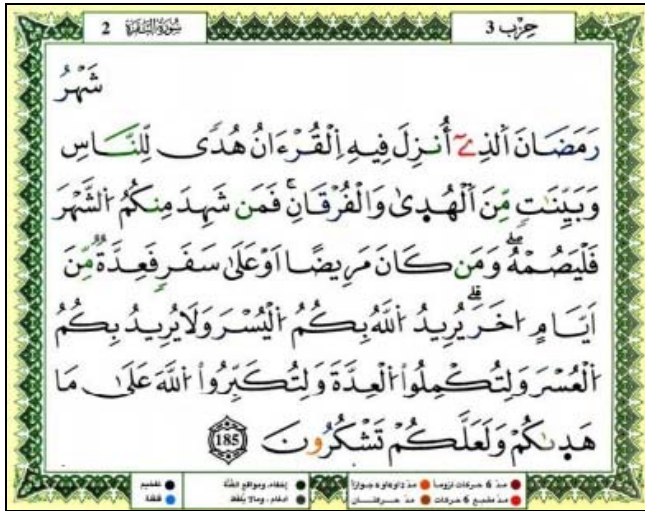 سُورَةُ البَقَرَة 2
حِزْب 3
شَهْرُ
رَمَضَانَ اَلذِےٓ أُنزِلَ فِيهِ اِلْقُرْءَانُ هُدىٗ لِّلنَّاسِ
وَبَيِّنَٰتٖ مِّنَ اَلْهُدۭىٰ وَالْفُرْقَانِۖ فَمَن شَهِدَ مِنكُمُ اُلشَّهْرَ
فَلْيَصُمْهُۖ وَمَن كَانَ مَرِيضًا اَوْ عَلَىٰ سَفَرٖ فَعِدَّةٞ مِّنَ
اَيَّامٍ اُخَرَۖ يُرِيدُ اُللَّهُ بِكُمُ اُلْيُسْرَ وَلَا يُرِيدُ بِكُمُ
اُلْعُسْرَ وَلِتُكْمِلُواْ اُلْعِدَّةَ وَلِتُكَبِّرُواْ اُللَّهَ عَلَىٰ مَا
هَدۭىٰكُمْ وَلَعَلَّكُمْ تَشْكُرُونَ 185
مدّ 6 حركات لزوماً مدّ 2 أو 4 أو 6 جوازاً إخفاء، ومواقع الغُنَّة تفخيم
مدّ مشبع 6 حركات مدّ حركتان ادغام، وما لا يُلفظ قلقلة